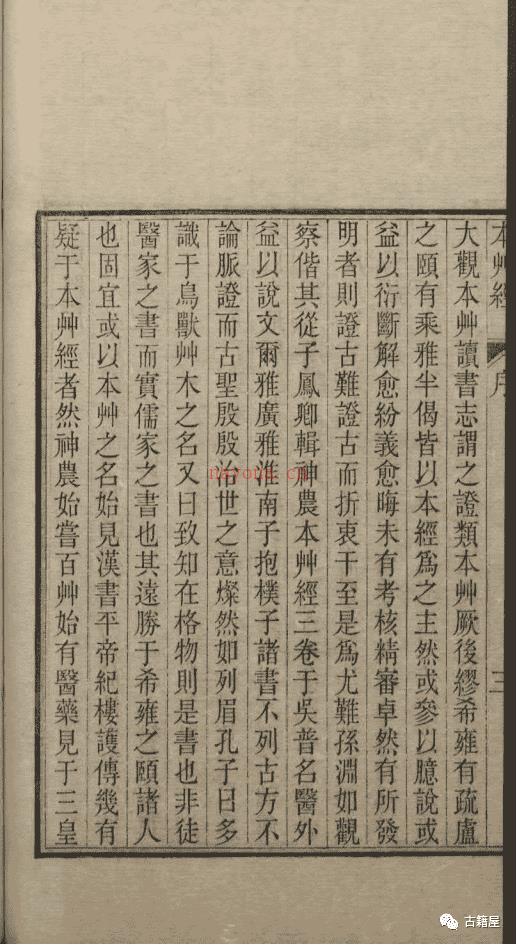 本艸經 序 三
大觀本艸讀書志謂之證類本艸厥後繆希雍有疏盧
之頤有乘雅半偈皆以本經爲之主然或參以臆說或
益以衍斷解愈紛義愈晦未有考核精審卓然有所發
明者則證古難證古而折衷于至是爲尤難孫淵如觀
察偕其從子鳳卿輯神農本艸經三卷于吳普名醫外
益以說文爾雅廣雅淮南子抱樸子諸書不列古方不
論脈證而古聖殷殷治世之意燦然如列眉孔子曰多
識于鳥獸艸木之名又曰致知在格物則是書也非徒
醫家之書而實儒家之書也其遠勝于希雍之頤諸人
也固宜或以本艸之名始見漢書平帝紀樓護傳幾有
疑于本艸經者然神農始嘗百艸始有醫藥見于三皇
古籍屋